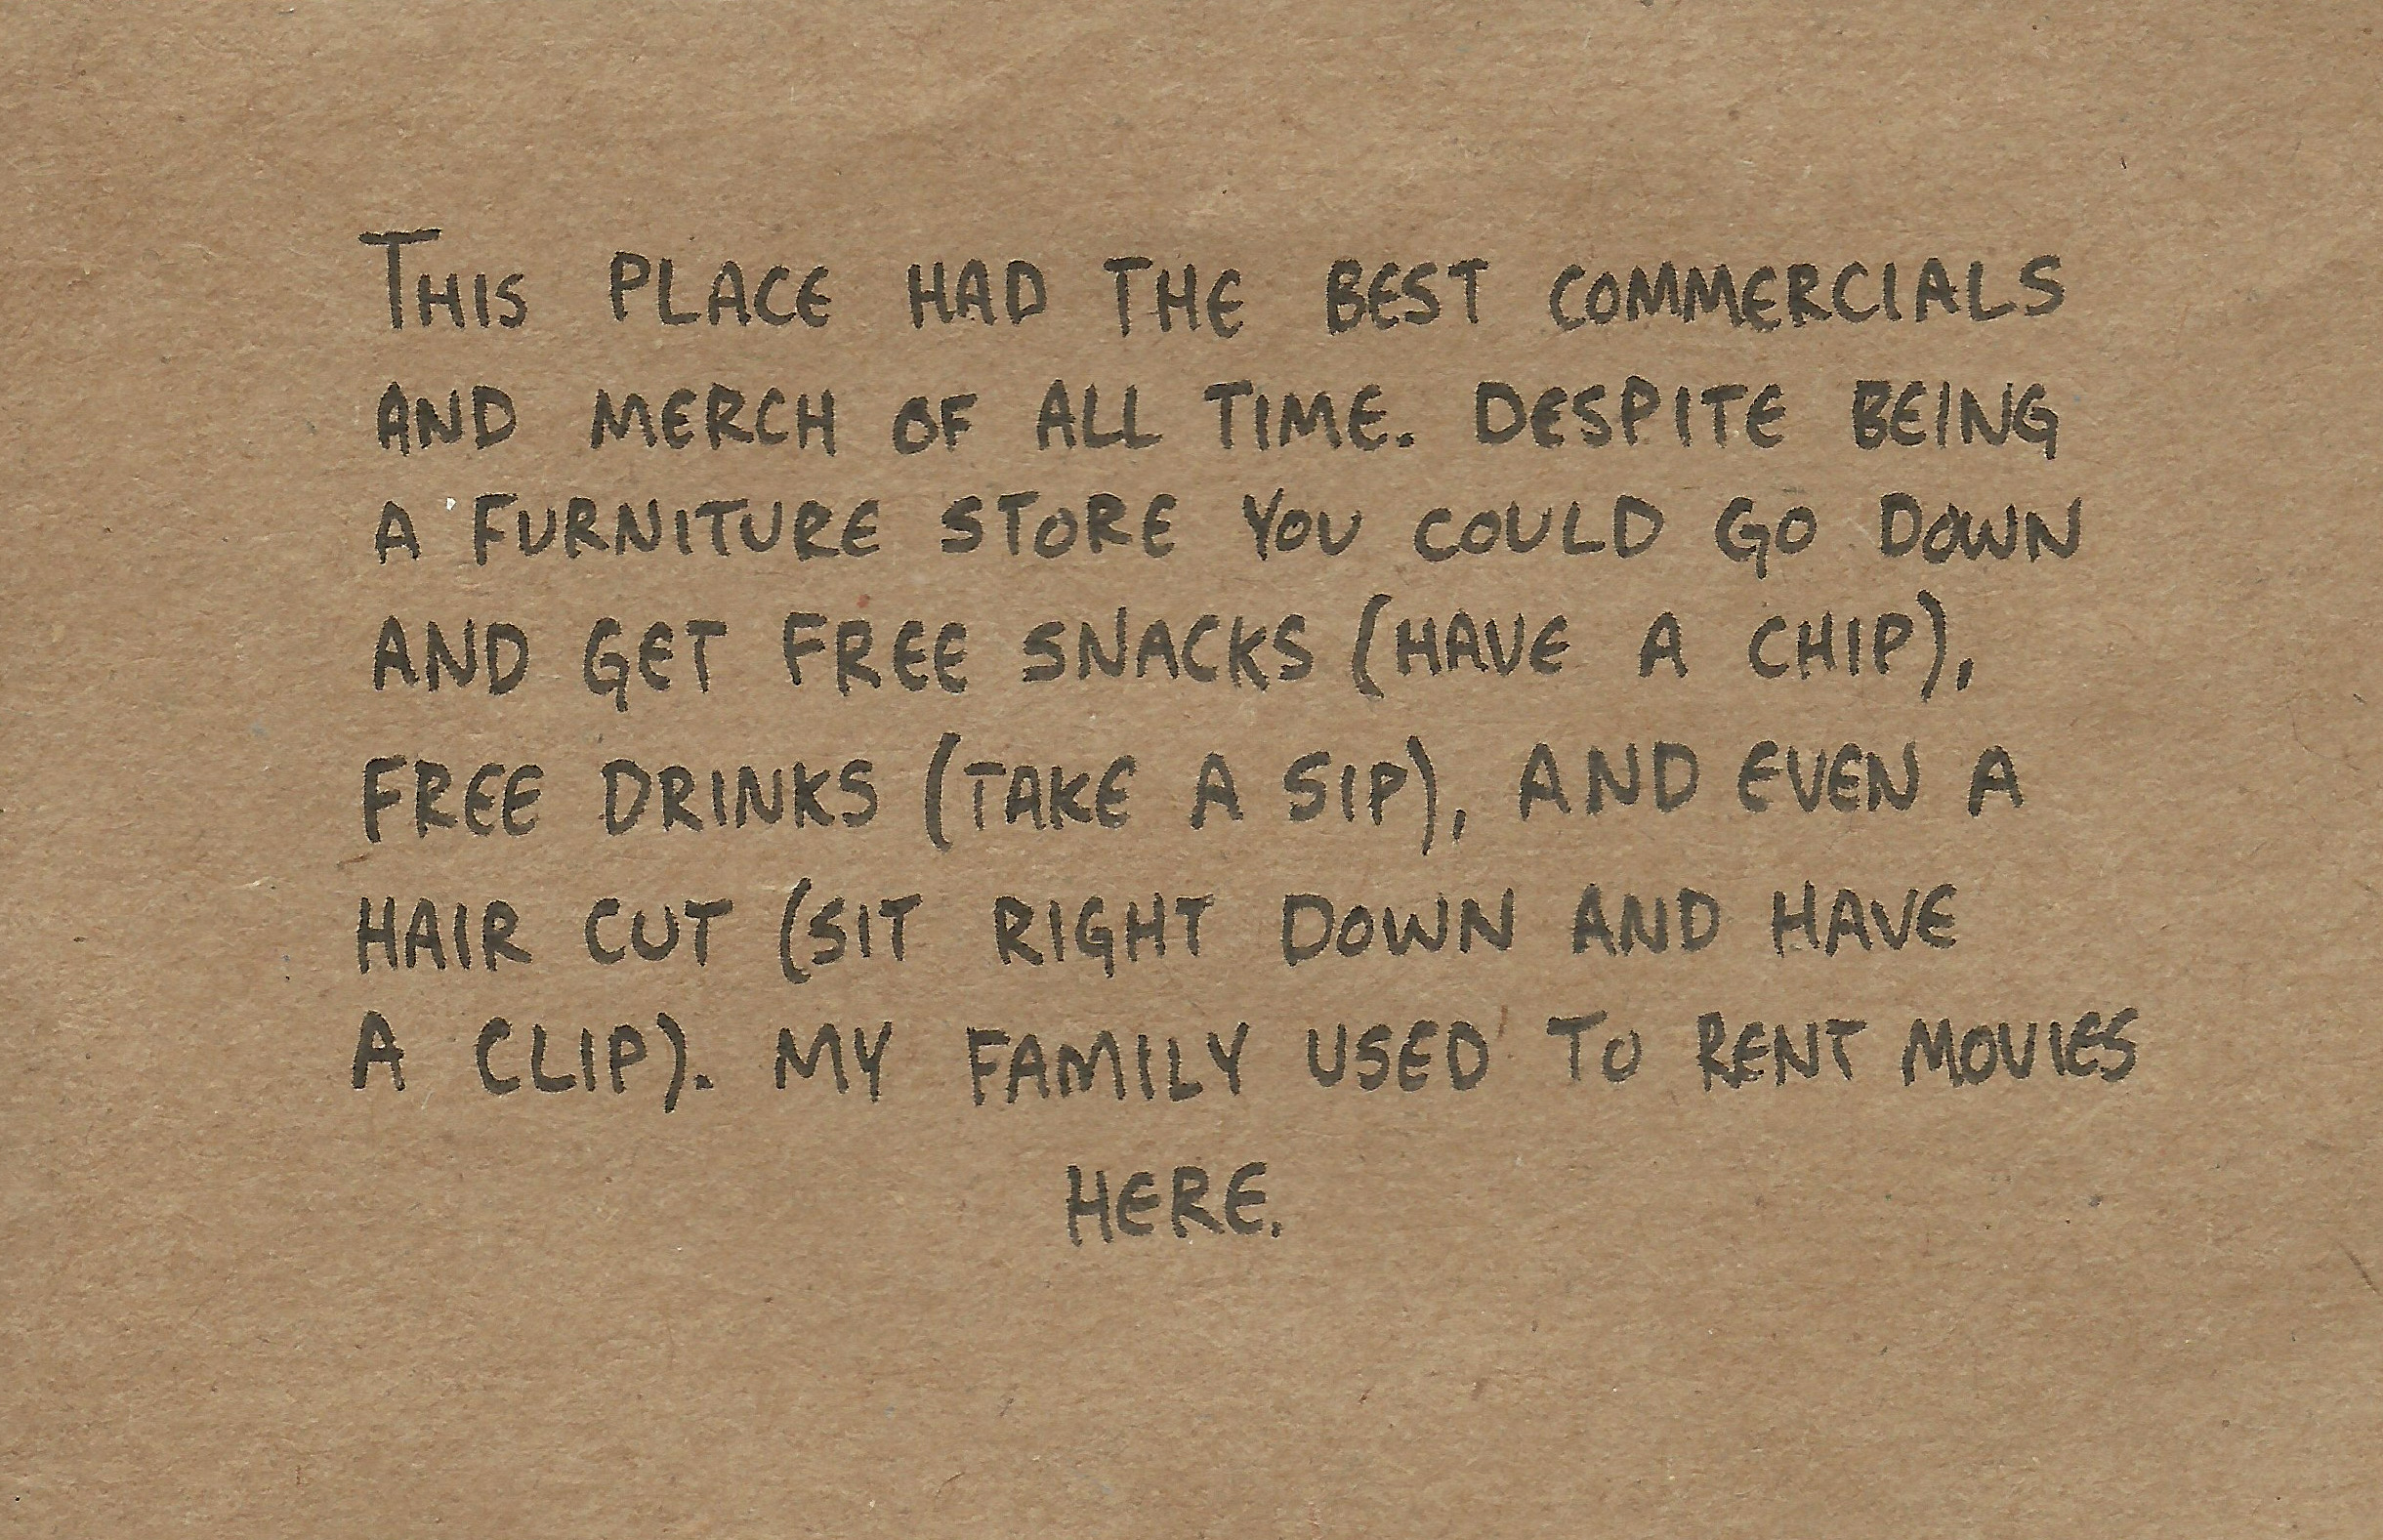 THIS PLACE HAD THE BEST COMMERCIALS
AND MERCH OF ALL TIME. DESPITE BEING
A FURNITURE STORE YOU COULD GO DOWN
AND GET FREE SNACKS (HAVE A CHIP),
FREE DRINKS (TAKE A SIP), AND EVEN A
HAIR CUT (SIT RIGHT DOWN AND HAVE
A CLIP). MY FAMILY USED TO RENT MOVIES
HERE.